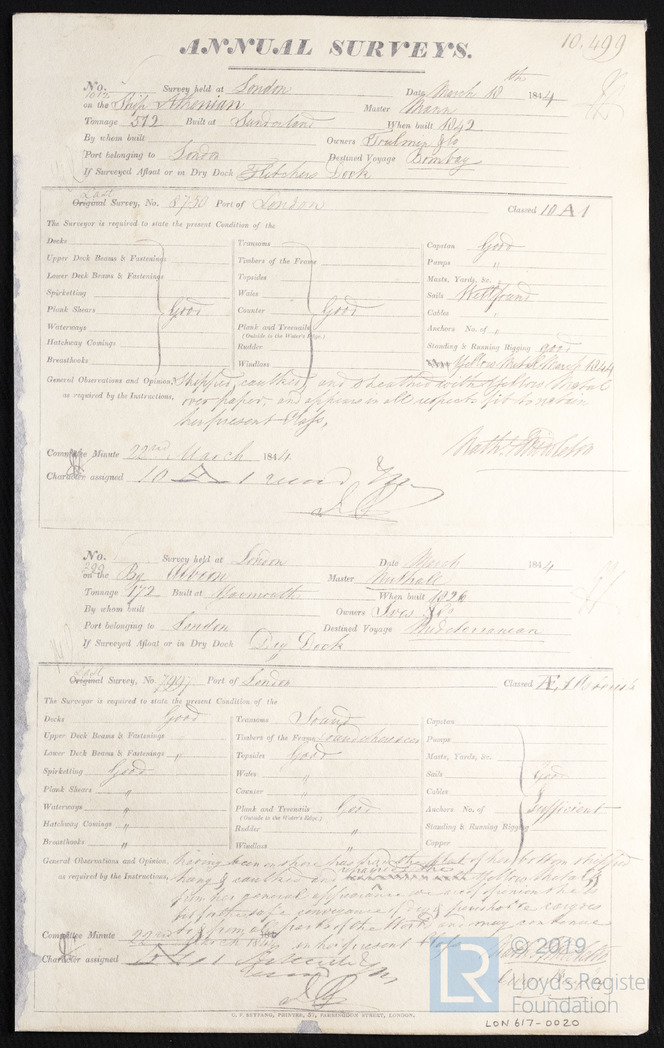 ANNUAL SURVEYS.
10,499
No. 1012 Survey held at London Date March 18th 1844
on the Ship Athenian Master Mann
Tonnage 512 Built at Sunderland When built 1842
By whom built Owners
Port belonging to London Destined Voyage Bombay
If Surveyed Afloat or in Dry Dock Fletchers Dock
Last
Original Survey, No. 8730 Port of London Classed 10 A 1
The Surveyor is required to state the present Condition of the
Decks Transoms Capstan Good
Upper Deck Beams & Fastenings Timbers of the Frame Pumps "
Lower Deck Beams & Fastenings Topsides Masts, Yards, &c. "
Spirketting Wales Sails Well found
Plank Shears Good Counter Good Cables "
Waterways Plank and Treenails Anchors No. of "
(Outside to the Water's Edge.)
Hatchway Comings Rudder Standing & Running Rigging good
Breasthooks Windlass Yellow Metal March 1844
General Observations and Opinion, Stripped, caulked, and sheathed with Yellow Metal
as required by the Instructions, over paper, and appears in all respects fit to retain
her present Class,
Committee Minute 22nd March 1844
Character assigned 10 A 1
No. 299 Survey held at London Date March 1844
on the Bg Albion Master
Tonnage 172 Built at Yarmouth When built 1826
By whom built Owners Ives & Co
Port belonging to London Destined Voyage Mediterranean
If Surveyed Afloat or in Dry Dock Dry Dock
Last
Original Survey, No. 7997 Port of London Classed Æ 1
The Surveyor is required to state the present Condition of the
Decks Good Transoms Sound Capstan
Upper Deck Beams & Fastenings Timbers of the Frame Pumps
Lower Deck Beams & Fastenings " Topsides Good Masts, Yards, &c.
Spirketting Good Wales " Sails Good
Plank Shears " Counter " Cables
Waterways " Plank and Treenails Good Anchors No. of Sufficient
(Outside to the Water's Edge.)
Hatchway Comings " Rudder " Standing & Running Rigging
Breasthooks " Windlass " Copper
General Observations and Opinion, having been on shore has had the Metal of her bottom stripped
as required by the Instructions, and caulked and Yellow Metal
from her general appearance we are of opinion she is
fit for the safe conveyance of dry & perishable cargoes
to & from all parts of the World and may continue
Committee Minute 22nd March 1844 in her present Class
Character assigned Æ 1
C. F. SEYFANG, PRINTER, 57, FARRINGDON STREET, LONDON.
LR
© 2019
Lloyd's Register
Foundation
LON 617-0020